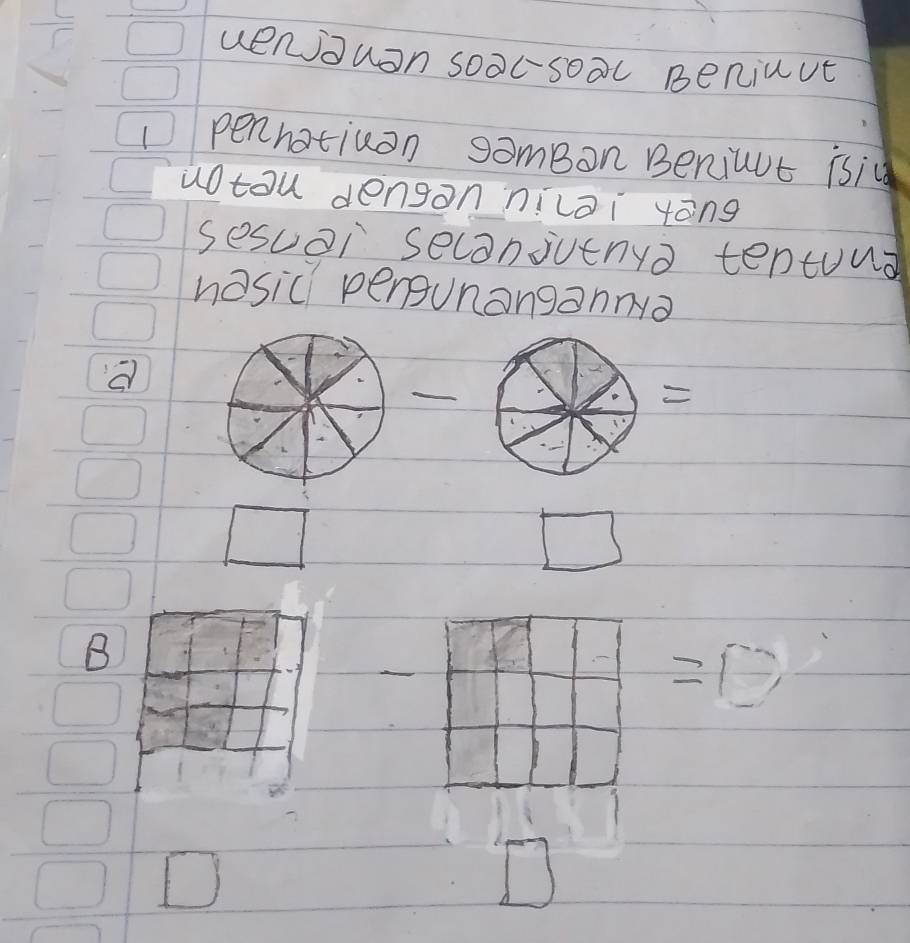 kerjakan soal-soal Berikut
1 perhatikan gambar Berikut isi
kotak dengan nilai yang
sesuai selanjutnya tentuka
hasil pengurangannya
a - =
B - =